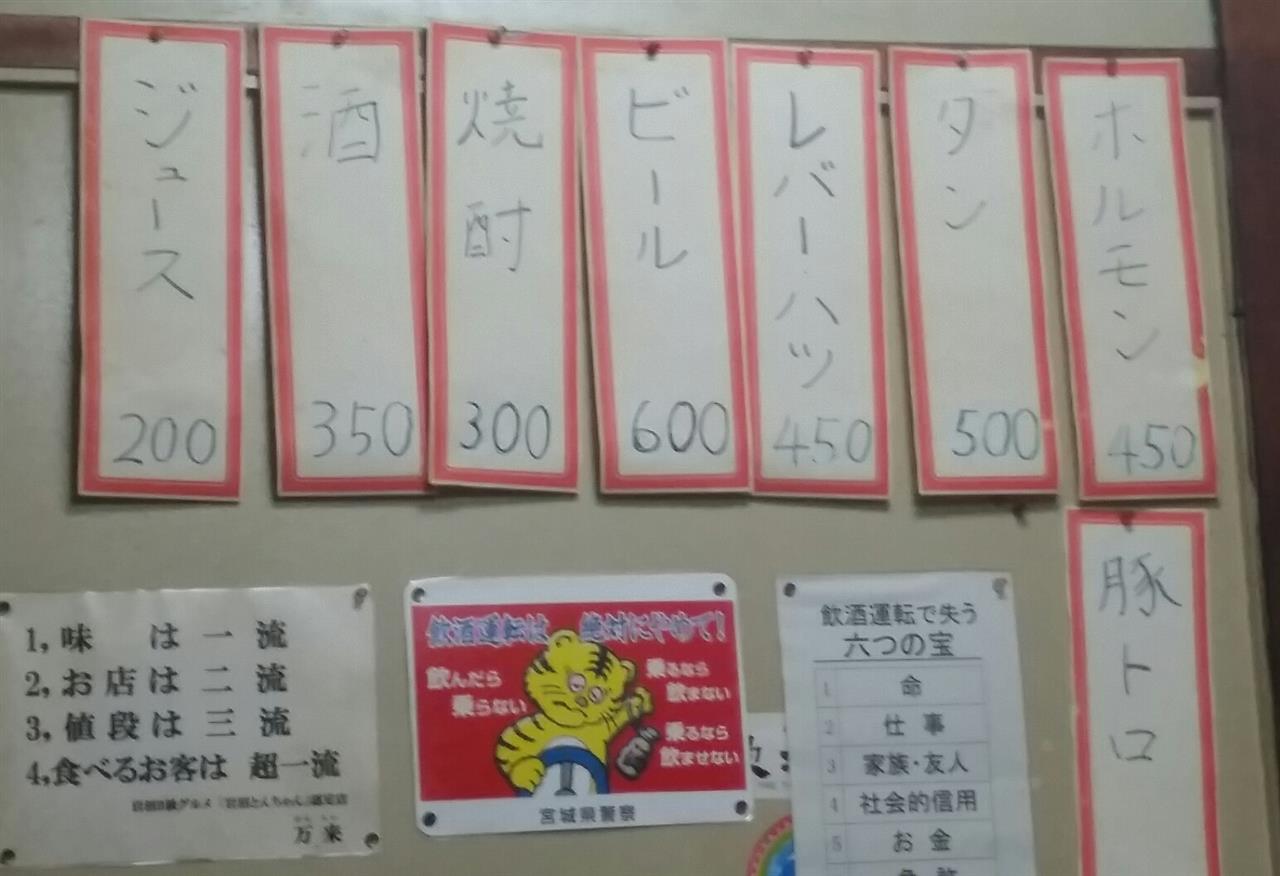 ホルモン
450
タン
500
レバー・ハツ
450
ビール
600
焼酎
300
酒
350
ジュース
200
豚トロ
1,味は一流
2,お店は二流
3,値段は三流
4,食べるお客は 超一流
岩沼B級グルメ「岩沼とんちゃん」認定店
万来
飲酒運転は 絶対にやめて!
飲んだら
乗らない
乗るなら
飲まない
乗るなら
飲ませない
宮城県警察
飲酒運転で失う
六つの宝
1 命
2 仕事
3 家族・友人
4 社会的信用
5 お金